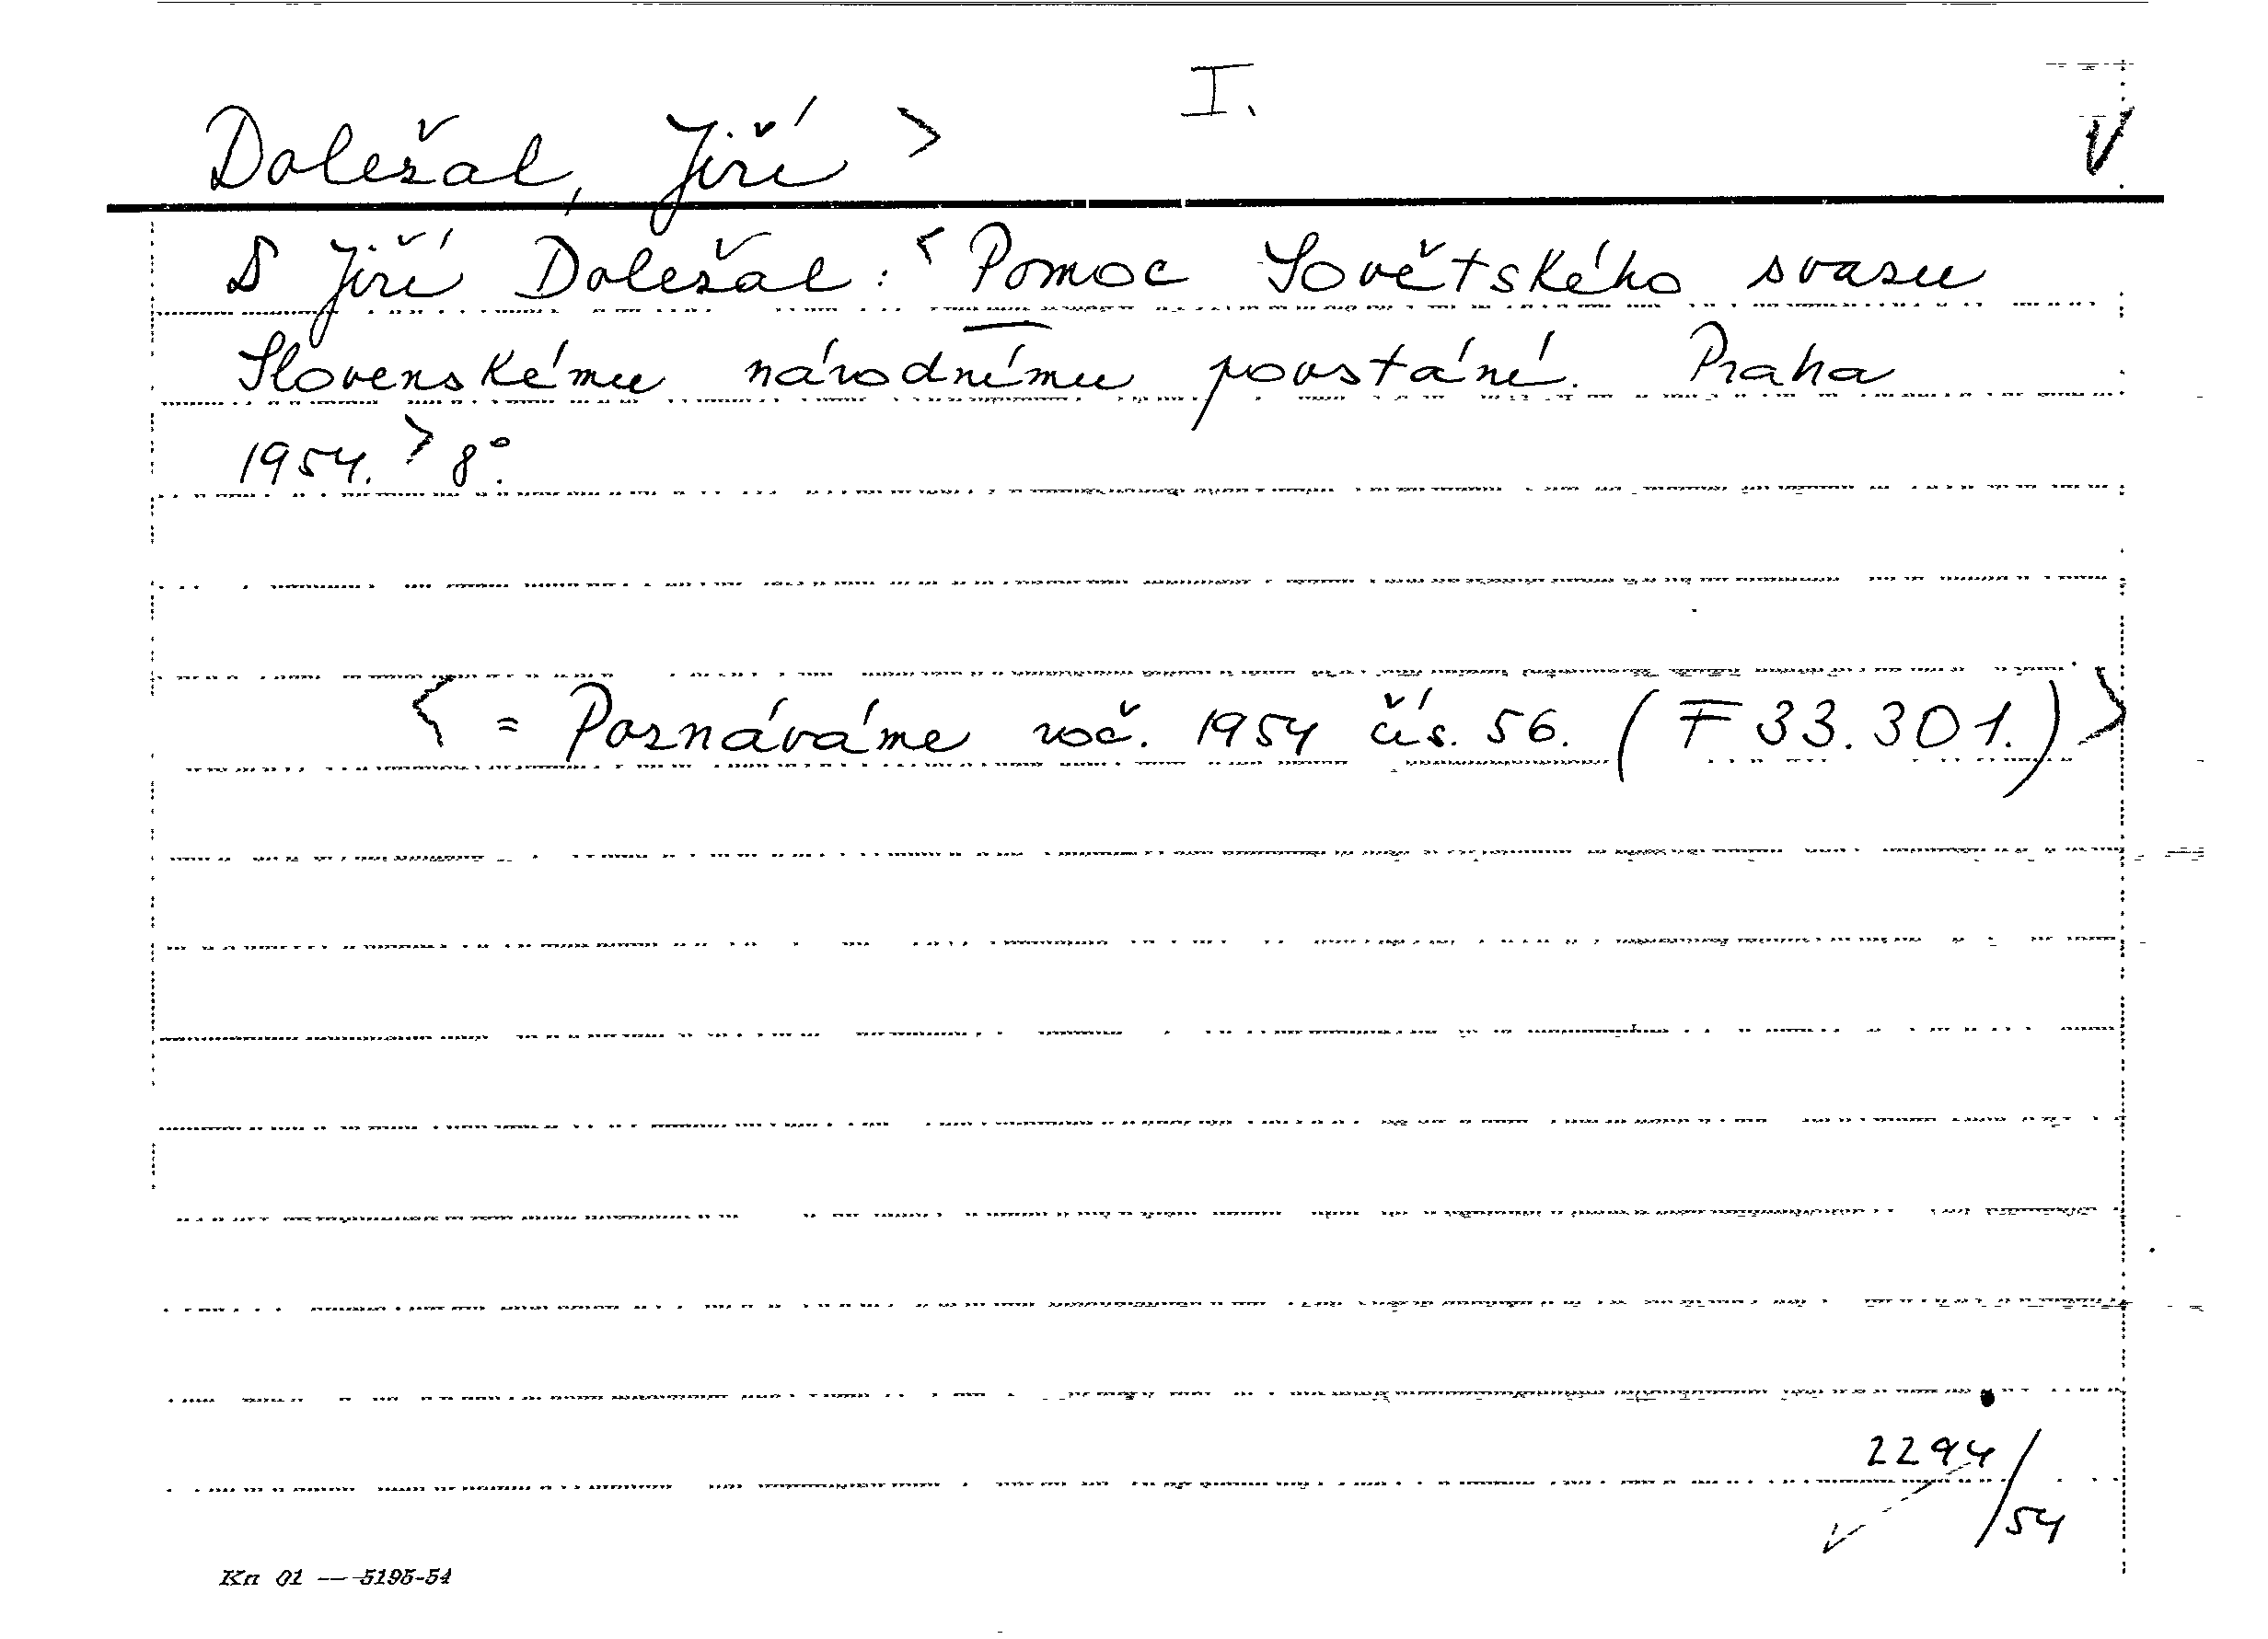 I.
Doležal, Jiří > V
D Jiří Doležal: < Pomoc Sovětského svazu
Slovenskému národnímu povstání. Praha
1954. > 8°.
< = Poznáváme roč. 1954 čís. 56. (F 33.301.) >
2294/54
Kn 01 — 5195-54